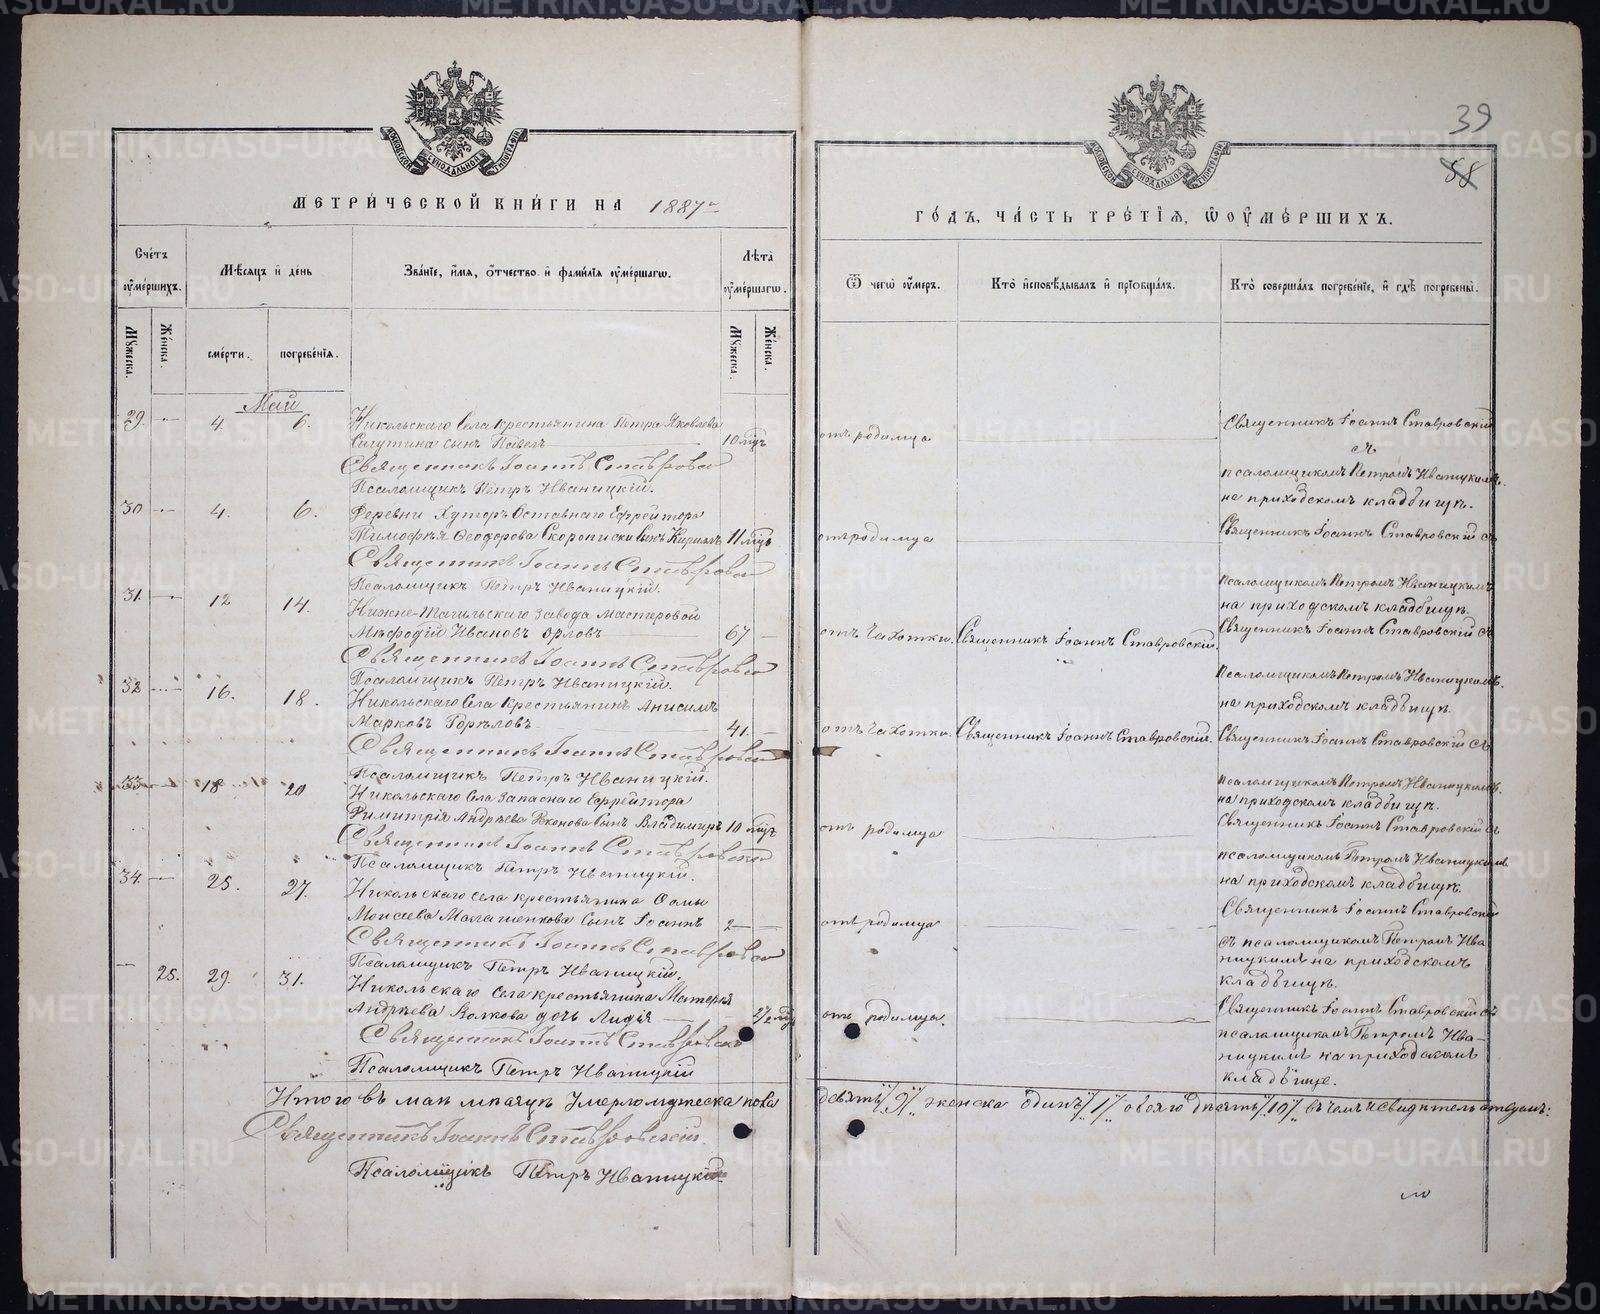 39
58
МЕТРИ́ЧЕСКОЙ КНИ́ГИ НА 1887 г.
ГО́ДЪ, ЧА́СТЬ ТРЕ́ТІѦ, Ѡ ОУМЕ́РШИХЪ.
Сче́тъ оумершихъ.
Мѣсяцъ и день
Званіе, имя, отчество и фамилія оумершагѡ.
Лѣта оумершагѡ.
Ѿ чегѡ оумеръ.
Кто исповѣдывалъ и пріобщалъ.
Кто совершалъ погребеніе, и гдѣ погребены.
Мужеска.
Женска.
смерти.
погребенія.
Мужеска.
Женска.
Май
29. 4. 6. Никольскаго Села крестьянина Петра Яковлева
Сигутина сынъ Павелъ 10 мцъ отъ родимца
Священникъ Іоаннъ Ставровскій
съ
псаломщикомъ Петромъ Иваницкимъ.
на приходскомъ кладбищѣ.
Священникъ Іоаннъ Ставровскій
Псаломщикъ Петръ Иваницкій.
30 4. 6. Деревни Хуторъ Отставнаго Ефрейтора
Тимофѣя Ѳеодорова Скорописки сынъ Кириллъ 11 мцъ отъ родимца
Священникъ Іоаннъ Ставровскій съ
псаломщикомъ Петромъ Иваницкимъ
на приходскомъ кладбищѣ.
Священникъ Іоаннъ Ставровскій
Псаломщикъ Петръ Иваницкій.
31. 12 14. Нижне-Тагильскаго завода мастеровой
Меѳодій Ивановъ Орловъ 67 отъ чахотки. Священникъ Іоаннъ Ставровскій.
Священникъ Іоаннъ Ставровскій съ
псаломщикомъ Петромъ Иваницкимъ.
на приходскомъ кладбищѣ.
Священникъ Іоаннъ Ставровскій
Псаломщикъ Петръ Иваницкій.
32 16. 18. Никольскаго Села крестьянинъ Анисимъ
Марковъ Горѣловъ 41. отъ чахотки. Священникъ Іоаннъ Ставровскій.
Священникъ Іоаннъ Ставровскій съ
псаломщикомъ Петромъ Иваницкимъ.
на приходскомъ кладбищѣ.
Священникъ Іоаннъ Ставровскій
Псаломщикъ Петръ Иваницкій.
33 18 20 Никольскаго Села запаснаго Ефрейтора
Димитрія Андреева сынъ Владимиръ 10 мцъ отъ родимца
Священникъ Іоаннъ Ставровскій съ
псаломщикомъ Петромъ Иваницкимъ
на приходскомъ кладбищѣ.
Священникъ Іоаннъ Ставровскій
Псаломщикъ Петръ Иваницкій.
34. 25. 27. Никольскаго села крестьянина Ѳомы
Моисеева сынъ Іоаннъ 2 отъ родимца
Священникъ Іоаннъ Ставровскій
съ псаломщикомъ Петромъ Ива
ницкимъ на приходскомъ
кладбищѣ.
Священникъ Іоаннъ Ставровскій
Псаломщикъ Петръ Иваницкій.
25. 29. 31. Никольскаго села крестьянина Матвѣя
Андреева Волкова дочь Лидія отъ родимца.
Священникъ Іоаннъ Ставровскій съ
псаломщикомъ Петромъ Ива-
ницкимъ на приходскомъ
кладбище.
Священникъ Іоаннъ Ставровскій
Псаломщикъ Петръ Иваницкій
Итого въ маѣ мѣсяцѣ умерло мужеска пола девять /9/ женска одинъ /1/ обоего десять /10/ въ чемъ и свидѣтельствуемъ:
Священникъ Іоаннъ Ставровскій.
Псаломщикъ Петръ Иваницкій
METRIKI.GASO-URAL.RU